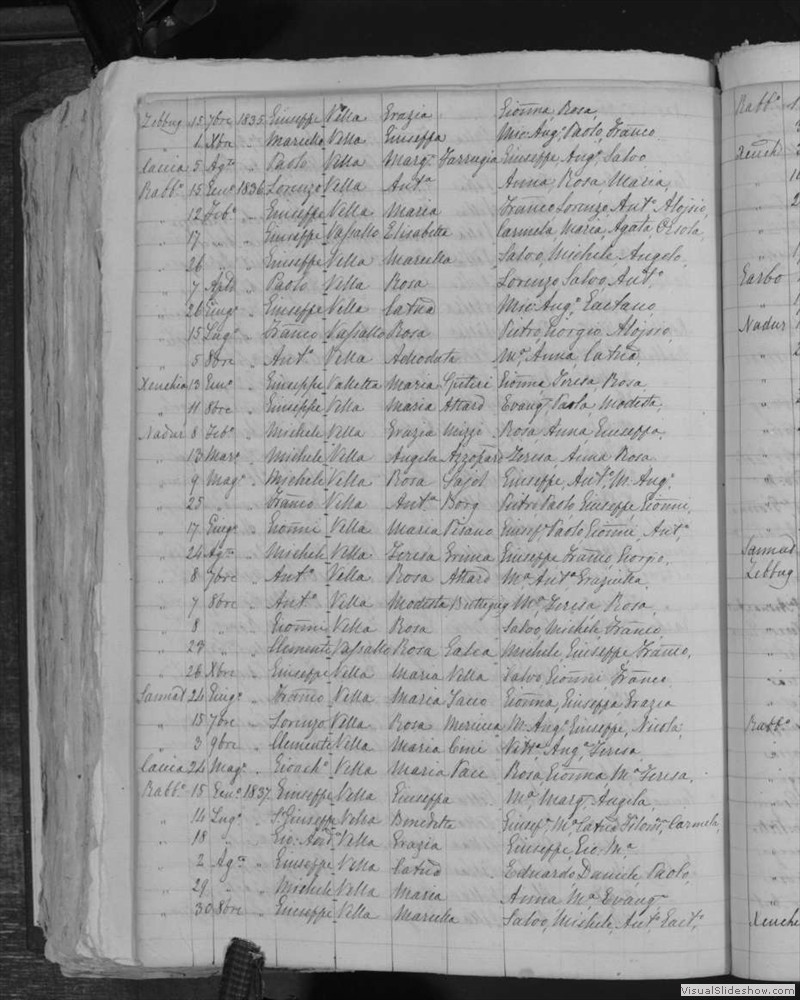 Zebbug 15 7bre 1835 Giuseppe Vella Grazia Gionna, Rosa,
" 1 Xbre " Marcello Vella Giuseppa Mic. Ang.o Paolo, Franco
Caccia 5 Ag.to " Paolo Vella Marg.a Farrugia Giuseppe, Ang.o, Salvo
Rabb.o 15 Gen.o 1836 Lorenzo Vella Ant.a Anna, Rosa, Maria,
" 12 Feb.o " Giuseppe Vella Maria Franco Lorenzo, Ant.o Aloisio,
" 17 " " Giuseppe Vassallo Elisabetta Carmela, Maria, Agata, Orsola,
" 26 " " Giuseppe Vella Marcella Salvo, Michele, Angelo,
" 7 Aple " Paolo Vella Rosa Lorenzo, Salvo, Ant.o
" 26 Giug.o " Giuseppe Vella Catnd Mic. Ang.o Gaetano,
" 15 Lug.o " Franco Vassallo Rosa Pietro, Giorgio, Aloisio,
" 5 8bre " Ant.o Vella Adeodata M.a, Anna, Catnd,
Xeuchia 13 Gen.o " Giuseppe Valletta Maria Gionna, Teresa, Rosa,
" 11 8bre " Giuseppe Vella Maria Attard Evang.a Paola, Modesta,
Nadur 8 Feb.o " Michele Vella Grazia Mizzi Rosa, Anna, Giuseppa,
" 13 Mar.o " Michele Vella Angela Azzopard Teresa, Anna, Rosa
" 9 Mag.o " Michele Vella Rosa Giuseppe, Ant.o, M. Ang.o
" 25 " " Franco Vella Ant.a Borg Pietro Paolo, Giuseppe, Gionni,
" 17 Giug.o " Gionni Vella Maria Pisano Giusep.e Paolo, Gionni, Ant.o,
" 24 Ag.to " Michele Vella Teresa Grima Giuseppe, Franco, Giorgio,
" 8 7bre " Ant.o Vella Rosa Attard M.a Ant.a Graziulla,
" 7 8bre " Ant.o Vella Modesta Buttigieg M.a, Teresa, Rosa,
" 8 " Gionni Vella Rosa Salvo, Michele, Franco
" 23 " Clemente Vassallo Rosa Galea Michele, Giuseppe, Franco,
" 26 Xbre " Giuseppe Vella Maria Vella Salvo, Gionni, Franco
Sannat 24 Giug.o " Franco Vella Maria Gionna, Giuseppa, Grazia
" 15 7bre " Lorenzo Vella Rosa M. Ang.o Giuseppe, Nicola,
" 3 9bre " Clemente Vella Maria Ang.a, Teresa,
Caccia 24 Mag.o " Gioach.o Vella Maria Pace Rosa, Gionna, M.a Teresa,
Rabb.o 15 Gen.o 1837 Giuseppe Vella Giuseppa M.a, Marg.a Angela,
" 14 Lug.o " Giuseppe Vella Benedetta Giusep.a M.a Catnd Carmela,
" 18 " " Gio: Vella Grazia Giuseppe, Gio. M.a
" 2 Ag.to " Giuseppe Vella Catnd Eduardo, Daniele, Paolo,
" 29 " " Michele Vella Maria Anna, M.a Evang.a
" 30 8bre " Giuseppe Vella Marcella Salvo, Michele, Ant.o, Gaet.o,
Rabb.o
Xeuch
Garbo
Nadur
Sannat
Zebbug
Rabb.o
Xeuche
VisualSlideshow.com